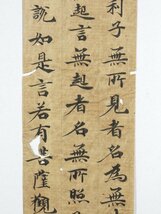 利子無所見者名為無
起言無起者名無所照
說如是言若有菩薩觀